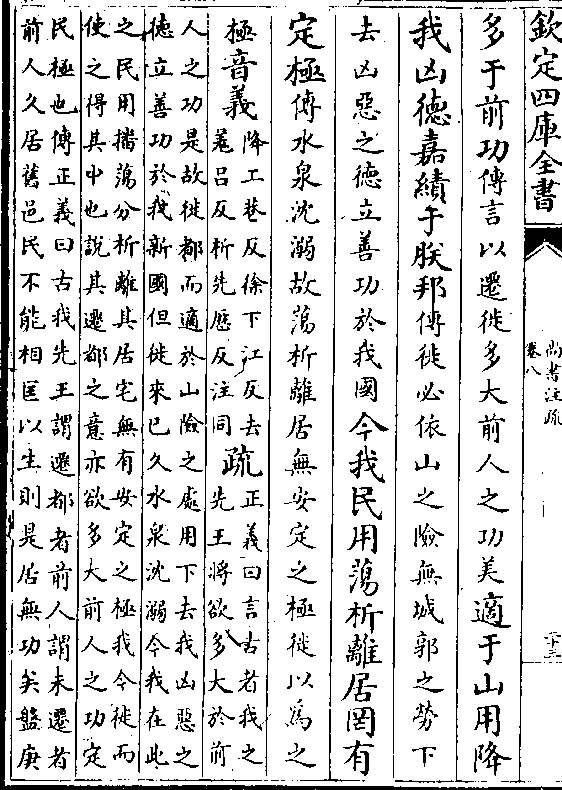 欽定四庫全書
尚書注疏
卷八
二十三
多于前功傳言以遷徙多大前人之功美適于山用降
我凶德嘉績于朕邦傳徙必依山之險無城郭之勞下
去凶惡之德立善功於我國今我民用蕩析離居罔有
定極傳水泉沈溺故蕩析離居無安定之極徙以為之
極音義降工巷反徐下江反去
羌呂反析先歷反注同疏正義曰言古者我之
先王將欲多大於前
人之功是故徙都而適於山險之處用下去我凶惡之
德立善功於我新國但徙來已久水泉沈溺今我在此
之民用播蕩分析離其居宅無有安定之極我今徙而
使之得其中也說其遷都之意亦欲多大前人之功定
民極也傳正義曰古我先王謂遷都者前人謂未遷者
前人久居舊邑民不能相匡以生則是居無功矣盤庚